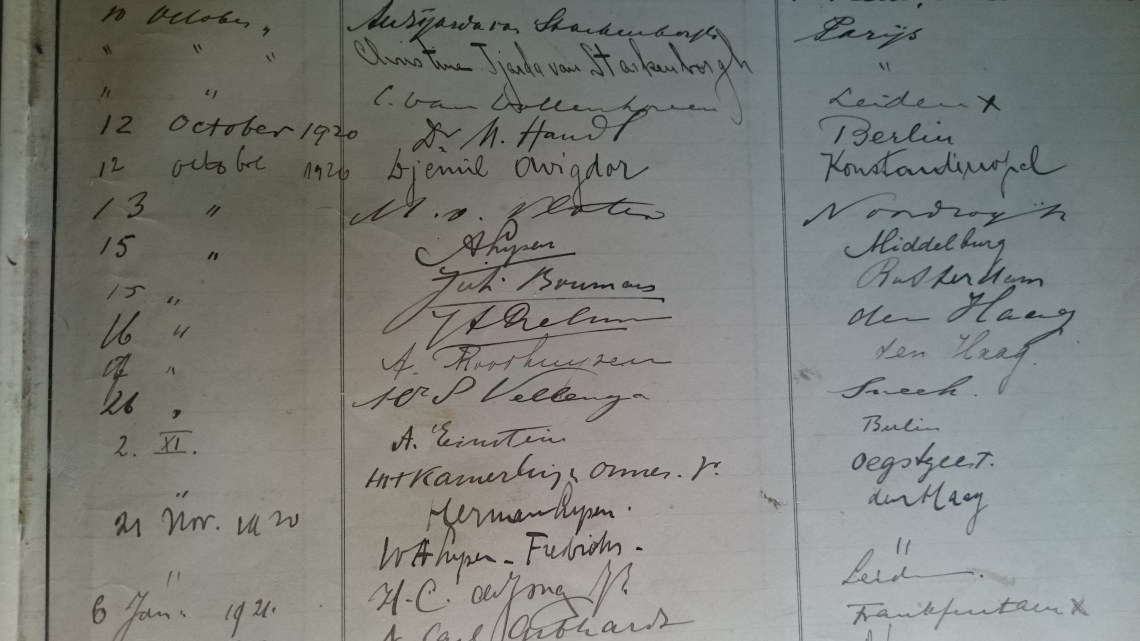 10 October " Tjarda van Starkenborgh Parijs
" " " Christine Tjarda van Starkenborgh "
" " C. van Vollenhoven Leiden x
12 October 1920 Dr. M. Handl Berlin
12 octobre 1920 Djemil Avigdor Konstantinopel
13 " M. v. Vloten Noordwijk
15 " AKuyper Middelburg
15 " Joh. Boumans Rotterdam
16 " den Haag
" A. Roothuyzen den Haag
26 " Mr S Vellenga Sneek.
2. XI. A. Einstein Berlin
" Kamerlingh Onnes. Jr. Oegstgeest.
21 Nov. 1920 Herman den Haag
"
" H.C. de Jong Jr. Leiden.
6 Jan. 1921. Carl Gebhardt Frankfurt a m x